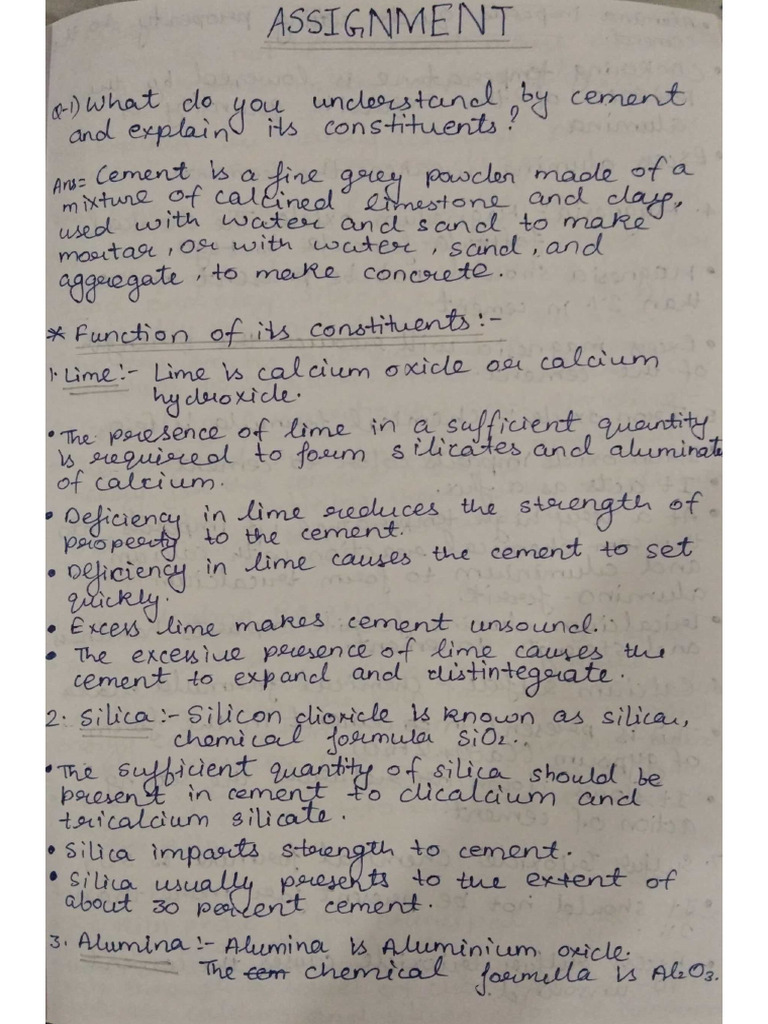 ASSIGNMENT
Q-1) What do you understand by cement
and explain its constituents?
Ans= Cement is a fine grey powder made of a
mixture of calcined limestone and clay,
used with water and sand to make
mortar, or with water, sand, and
aggregate, to make concrete.
* Function of its constituents:-
1. Lime:- Lime is calcium oxide or calcium
hydroxide.
• The presence of lime in a sufficient quantity
is required to form silicates and aluminate
of calcium.
• Deficiency in lime reduces the strength of
property to the cement.
• Deficiency in lime causes the cement to set
quickly.
• Excess lime makes cement unsound.
• The excessive presence of lime causes the
cement to expand and distintegrate.
2. Silica:- Silicon dioxide is known as silica,
chemical formula SiO2.
• The sufficient quantity of silica should be
present in cement to dicalcium and
tricalcium silicate.
• Silica imparts strength to cement.
• Silica usually presents to the extent of
about 30 percent cement.
3. Alumina:- Alumina is Aluminium oxide.
The chemical formula is Al2O3.